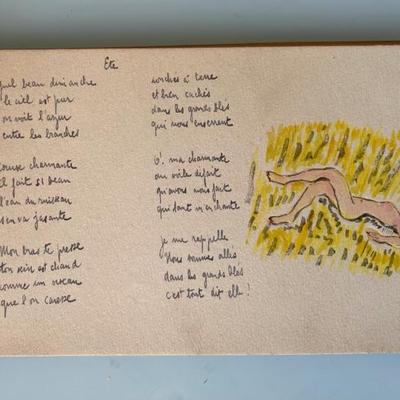 Ete
quel beau dimanche
le ciel est pur
on voit l'azur
entre les branches
Cousine charmante
il fait si beau
l'eau du ruisseau
s'en va jasante
Mon bras te presse
ton sein est chaud
comme un oiseau
que l'on caresse
couchés à terre
et bien cachés
dans les grands blés
qui nous enserrent
O! ma charmante
ou voile defait
qu'avons nous fait
qui tant m'enchante
je me rappelle
Nous sommes allés
dans les grands blés
c'est tout dit elle!